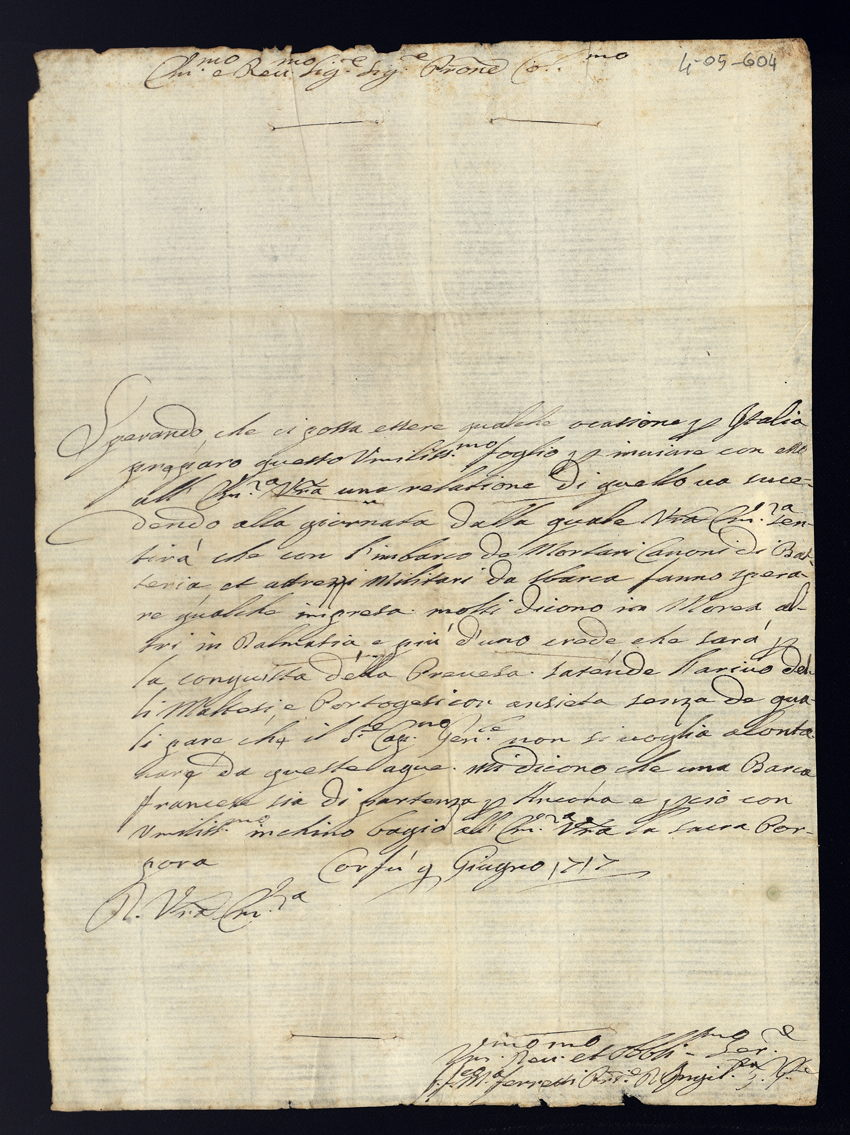 Em.mo e Rev.mo Sig.re Sig.re Prone Co.mo
4-05-604
Sperando, che ci possa essere qualche ocassione p Italia
preparo questo Umiliss.mo foglio p inuiare con esso
all' Em.za Vra una relatione di quello ua suce-
dendo alla giornata dalla quale Vra Em.za sen-
tirà che con l'imbarco de Mortari Canoni di Bat-
teria, et attrezzi Militari da sbarca fanno spera-
re qualche impresa. molti dicono in Morea al-
tri in Dalmatia, e più d'uno crede che sarà p
la conquista della Prevesa. s'atende l'ariuo del-
li Maltesi, e Portogesi con ansietà senza de qua-
li pare che il S.r Cap. Gen.le non si uoglia alonta
nare da queste aque. Mi dicono che una Barca
francese sia di partenza p Ancona e p cio con
Umiliss.mo inchino bagio all' Em.za Vra la sacra Por-
pora
Corfù 9 Giugno 1717
D. Vra Em.za
Um.mo Deu.mo et Obli.mo Ser.re
Ferretti